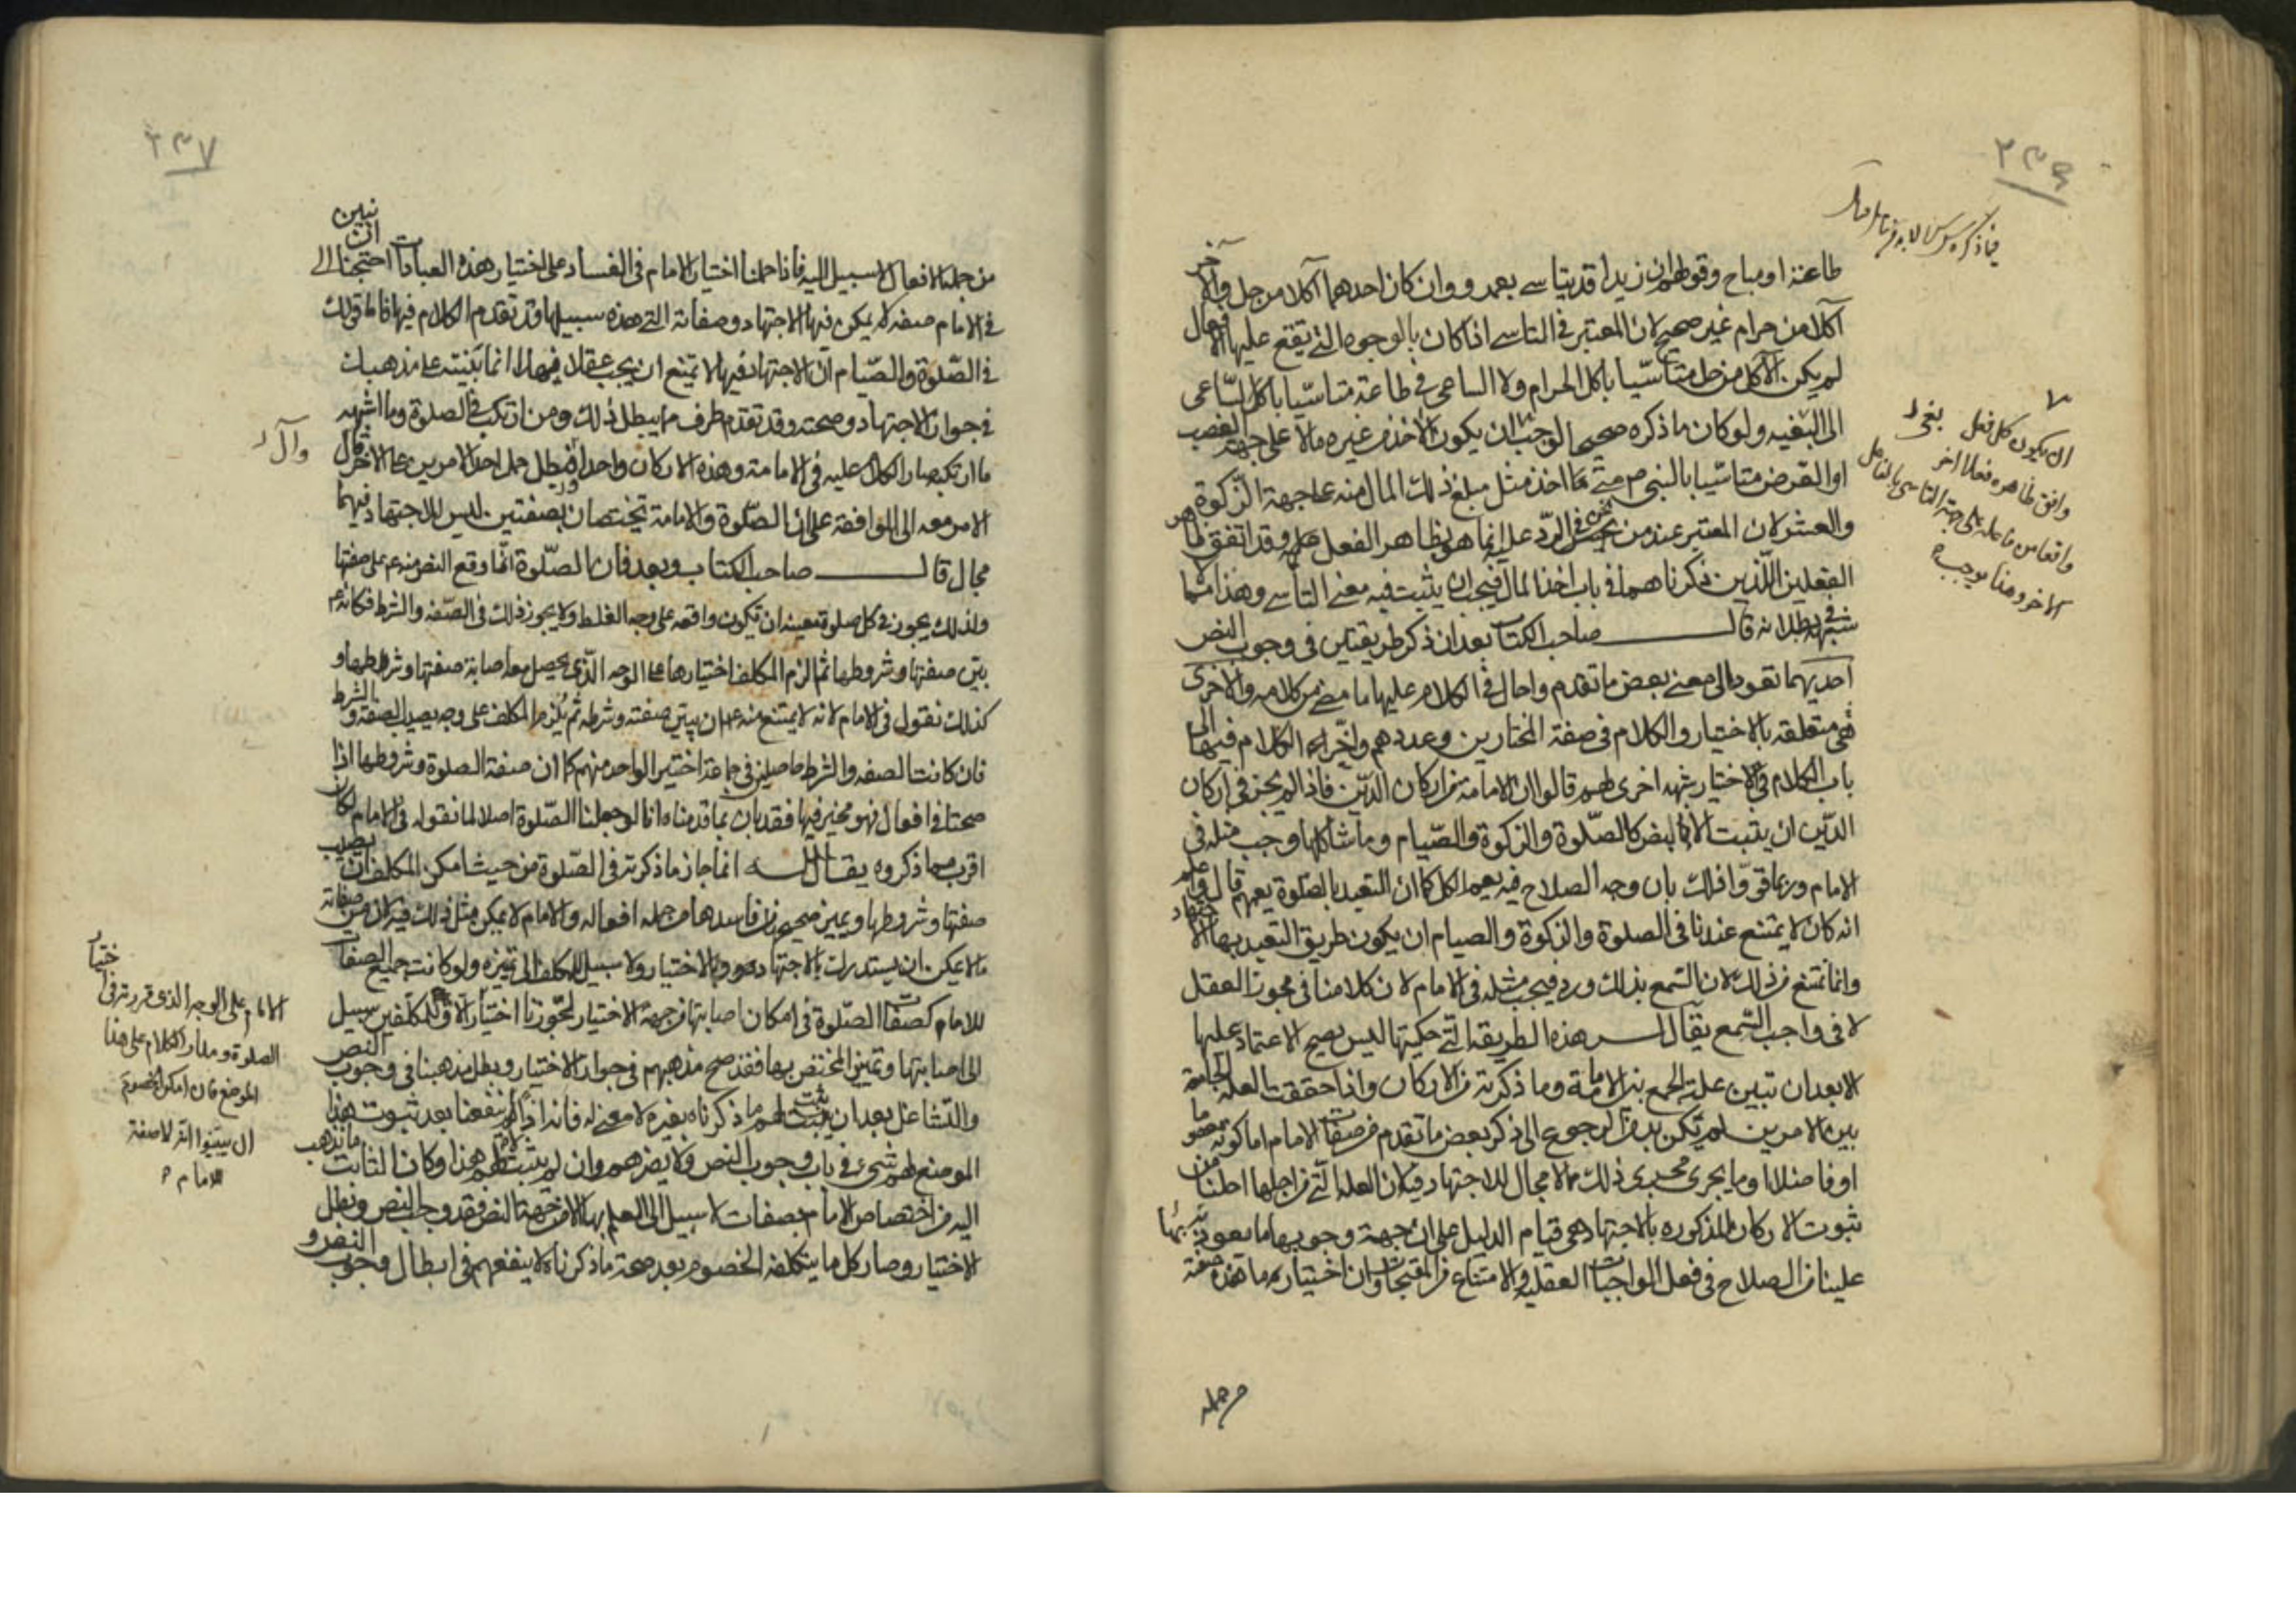 ٢٣٦
طاعة او مباح وقولهم ان زيدا قد يتاسى بعمرو وان كان احدهما آكلا من حل والآخر
آكلا من حرام غير صحيح لان المعتبر في التاسي اذا كان بالوجوه التي تقع عليها الافعال
لم يكن الآكل من حل متاسّيا باكل الحرام ولا الساعى في طاعة متاسّيا باكل السّاعى
الى البغيه ولو كان ما ذكره صحيحا لوجب ان يكون الآخذ من غيره مالا على جهة الغصب
او القرض متاسّيا بالنبي ص متى ما اخذ مثل مبلغ ذلك المال منه على جهة الزكوة
والعشر لان المعتبر عند من نحن في الردّ عليه انما هو بظاهر الفعل وقد اتفق ظاهر
الفعلين اللّذين ذكرناهما في باب اخذ المال فيجب ان يثبت فيه معنى التأسي وهذا مما لا
شبهة في بطلانه قال صاحب الكتاب بعد ان ذكر طريقتين في وجوب النص
احديهما تعود الى معنى بعض ما تقدم واحال في الكلام عليها ما مضى من كلامه والاخرى
هي متعلقه بالاختيار والكلام في صفة المختارين وعددهم واخّر الكلام فيها الى
باب الكلام في الاختيار شبهه اخرى لهم قالوا ان الامامة من اركان الدّين فاذا لم يجز في اركان
الدّين ان يثبت الا بالنص كالصّلوة والزكوة والصّيام وما شاكلها وجب مثله في
الامام وربما قوّوا ذلك بان وجه الصلاح فيه يعم الكل كما ان التعبد بالصّلوة يعمهم قال واعلم
انه كان لا يمتنع عندنا في الصلوة والزكوة والصيام ان يكون طريق التعبد بها الاجتهاد
وانما نمنع من ذلك لان السّمع بذلك ورد فيجب مثله في الامام لان كلامنا في مجوز العقل
لا في واجب السّمع يقال له هذه الطريقة التي حكيتها ليس يصح الاعتماد عليها
الا بعد ان تبين علة الجمع بين الامامة وما ذكرته من الاركان واذا حققت العله الجامعة
بين الامرين لم يكن بد من الرجوع الى ذكر بعض ما تقدم من صفات الامام اما كونه معصوما
او فاضلا وما يجرى مجرى ذلك مما لا مجال للاجتهاد فيه لان العلة التي من اجلها احلنا من
ثبوت الاركان المذكوره بالاجتهاد هي قيام الدليل على ان جهة وجوبها ما يعود بسببها
علينا من الصلاح في فعل الواجبات العقليه والامتناع من المقبحات وان اختيار ما هذه صفته
من جمله
ان يكون كل فعل
وافق ظاهره فعلا آخر
واقعا من فاعله على جهة التاسي بالفاعل
الآخر وهذا يوجب
٢٣٧
من جملة الافعال لا سبيل اليه فاذا حملنا اختيار الامام في الفساد على اختيار هذه العبادات احتجنا الى ان نبين
في الامام صفه لا يمكن فيها الاجتهاد وصفاته التي هذه سبيلها قد تقدم الكلام فيها فاما قولك
في الصّلوة والصّيام ان الاجتهاد فيها لا يمتنع ان يجب عقلا فهذا انما بنيته على مذهبك
في جواز الاجتهاد وصحته وقد تقدم طرف مما يبطل ذلك ومن ارتكب في الصلوة وما اشبهه
ما ارتكبه صار الكلام عليه في الامامة وهذه الاركان واحدا فبطل حمل احد الامرين على الآخر وآل
الامر معه الى الموافقة على ان الصّلوة والامامة تختصان بصفتين ليس للاجتهاد فيهما
مجال قال صاحب الكتاب وبعد فان الصّلوة انّما وقع النص منه ع على صفتها
ولذلك يجوز في كل صلوة معينه ان تكون واقعه على وجه الغلط ولا يجوز ذلك في الصّفه والشرط فكانه ع
بيّن صفتها وشروطها ثم الزم المكلف اختيارها على الوجه الّذي يحصل معه اصابة صفتها وشرطها و
كذلك نقول في الامام لانه لا يمتنع منه ع ان يبيّن صفته وشرطه ثم يُلزم المكلف على وجه يصيب الصفة والشرط
فان كانت الصفه والشرط حاصلين في جماعة اختير الواحد منهم كما ان صفة الصلوة وشروطها اذا
صحتا في افعال فهو مخير فيها فقد بان بما قدمناه انا لو جعلنا الصّلوة اصلا لما نقوله في الامام لكان
اقرب مما ذكروه يقال له انما جاز ما ذكرته في الصّلوة من حيث امكن المكلف ان يصيب
صفتها وشروطها ويميز صحيحها من فاسدها من جمله افعاله والامام لا يمكن مثل ذلك فيه لان من صفاته
ما لا يمكن ان يستدرك بالاجتهاد والاختيار ولا سبيل للمكلف الى تميزه ولو كانت جميع الصفات
للامام كصفات الصّلوة في امكان اصابتها من جهة الاختيار لجوّزنا اختيار الامام وللمكلفين سبيل
الى اصابتها وتميز المختص بها فقد صح مذهبهم في جواز الاختيار وبطل مذهبنا في وجوب النص
والتشاغل بعد ان يثبت لهم ما ذكرناه بغيره لا معنى له فانه اذا لم ينفعنا بعد ثبوت هذا
الموضع لهم شيء في باب وجوب النص ولا يضرهم وان لم يثبت لهم هذا وكان الثابت ما نذهب
اليه من اختصاص الامام بصفات لا سبيل الى العلم بها الا من جهة النص فقد وجب النص وبطل
الاختيار وصار كل ما يتكلفه الخصوم بعد صحة ما ذكرناه لا ينفعهم في ابطال وجوب النص و
وآل
الامام على الوجه الذي قررته في اختيار
الصلوة ومدار الكلام على هذا
الموضع فان امكن الخصوم
ان يبينوا انه لا صفة
للامام